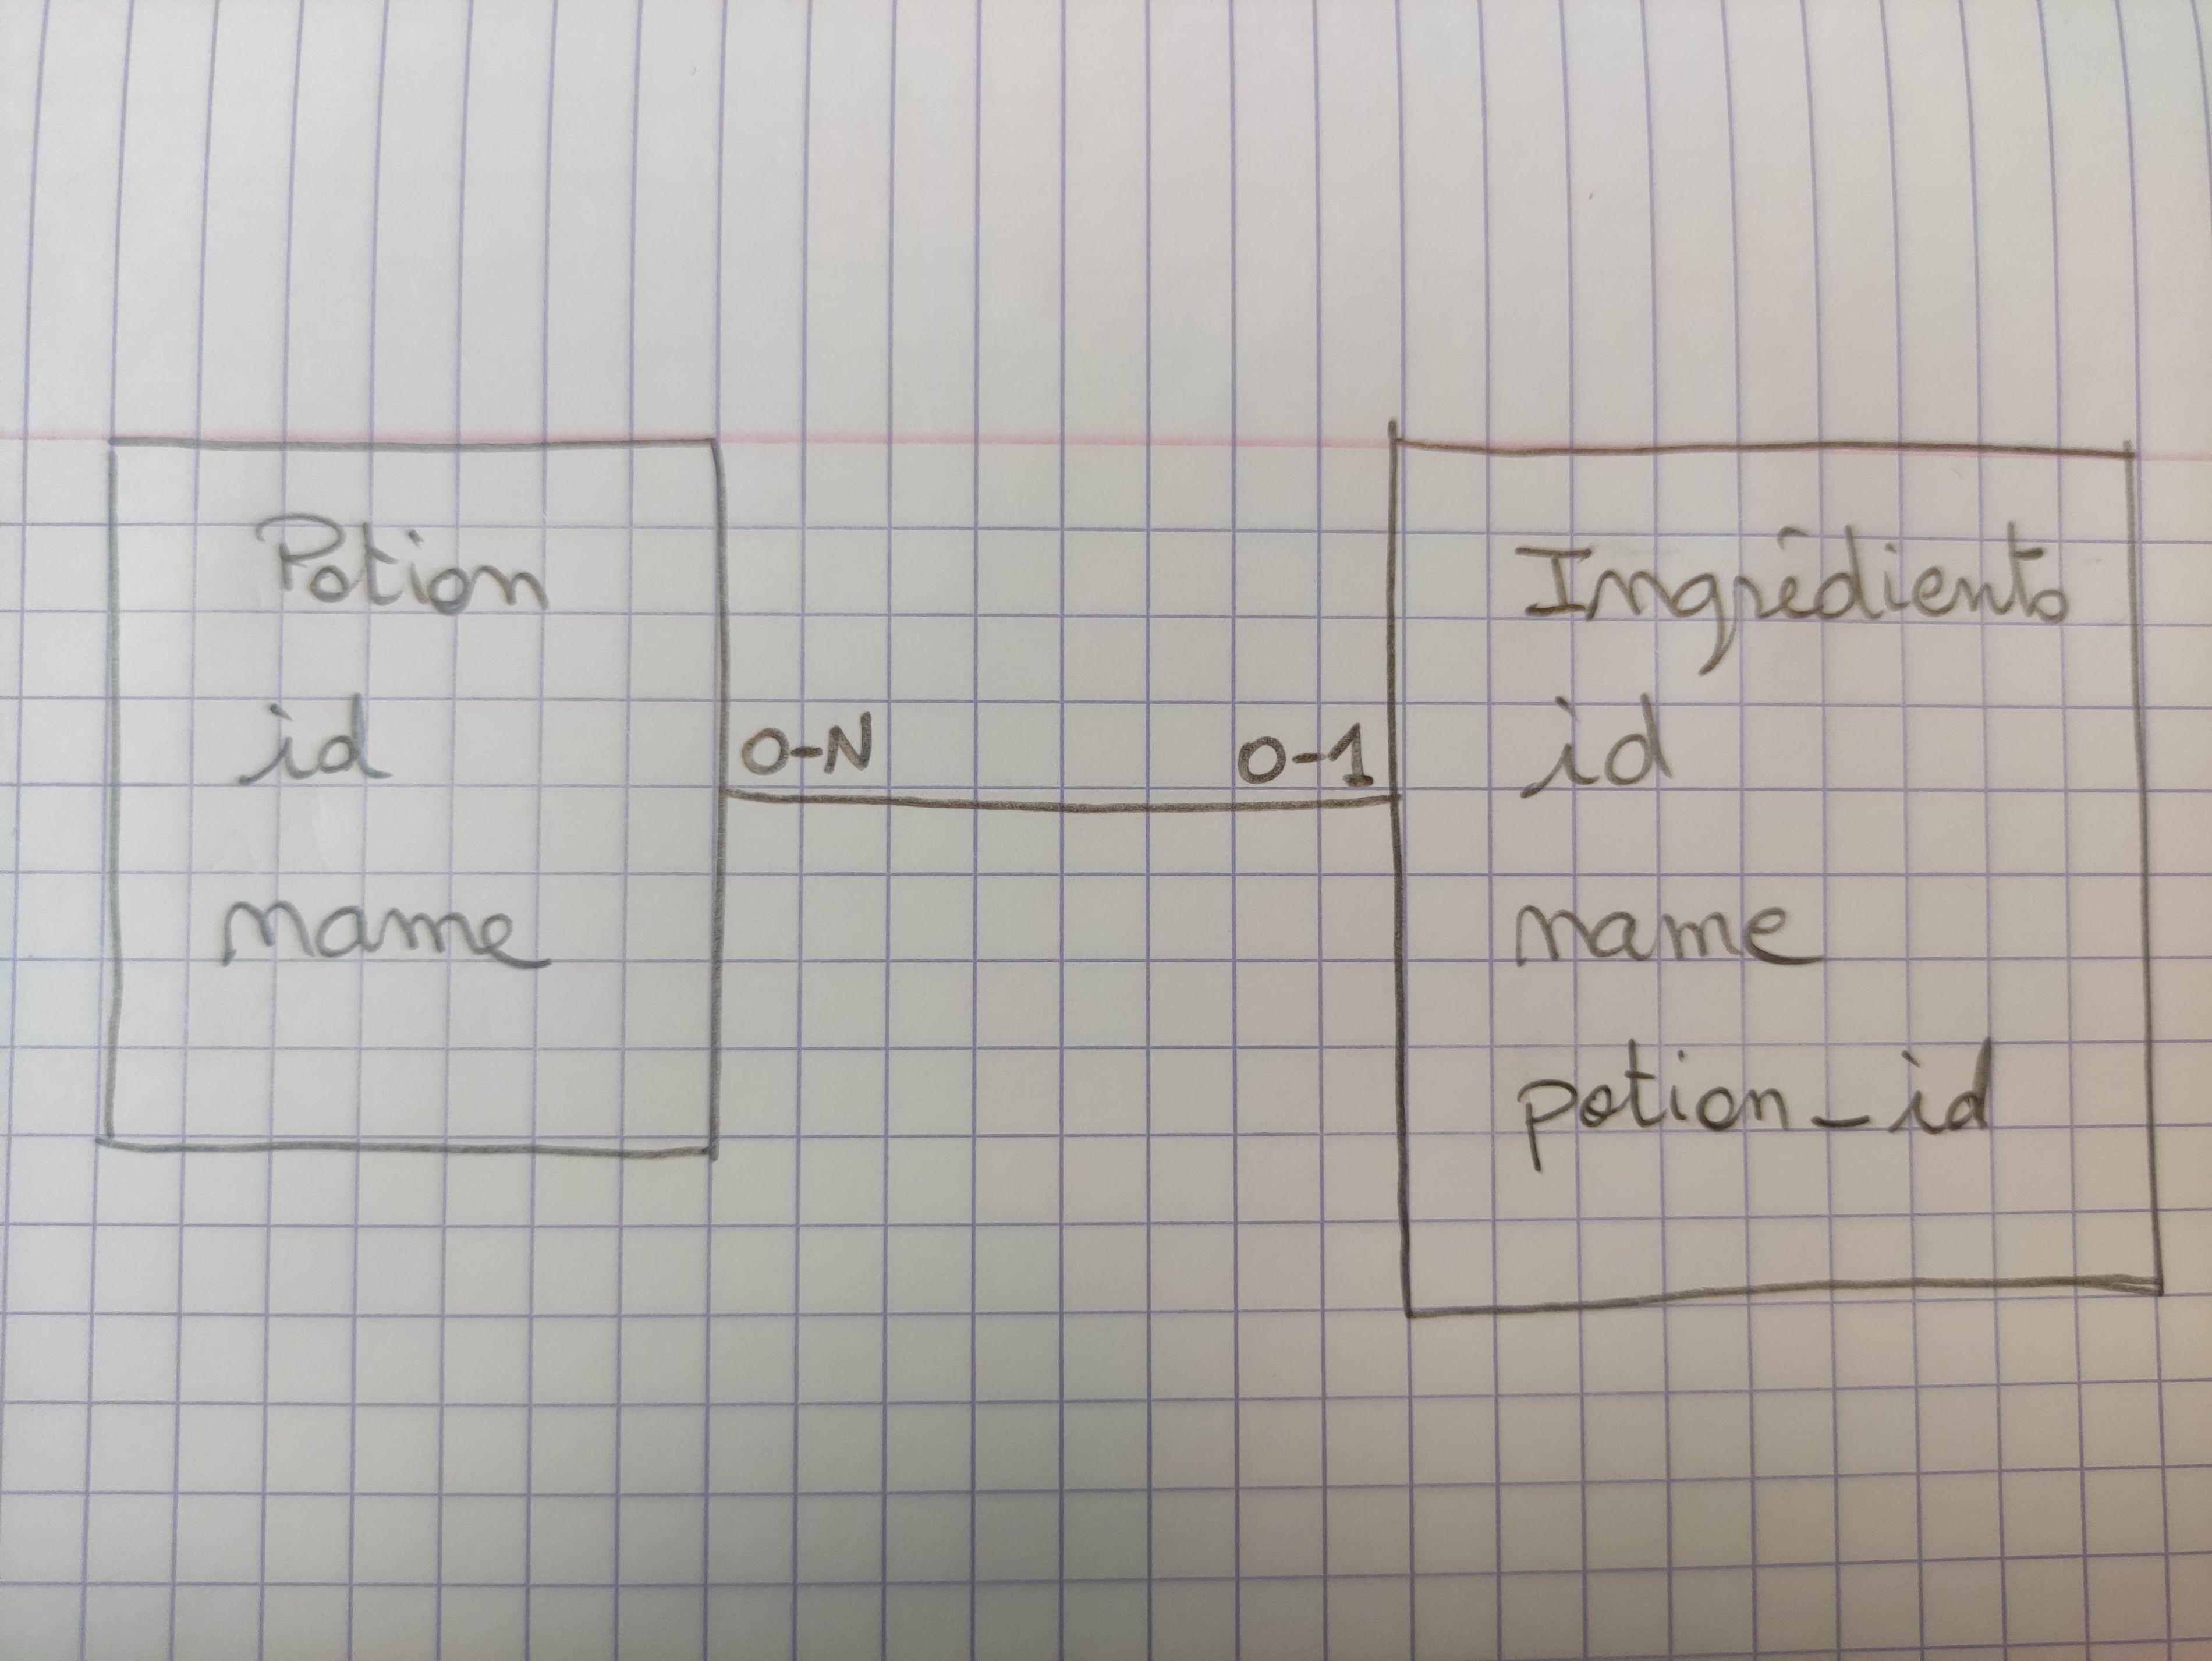 Potion
id
name
0-N
0-1
Ingrédients
id
name
potion_id